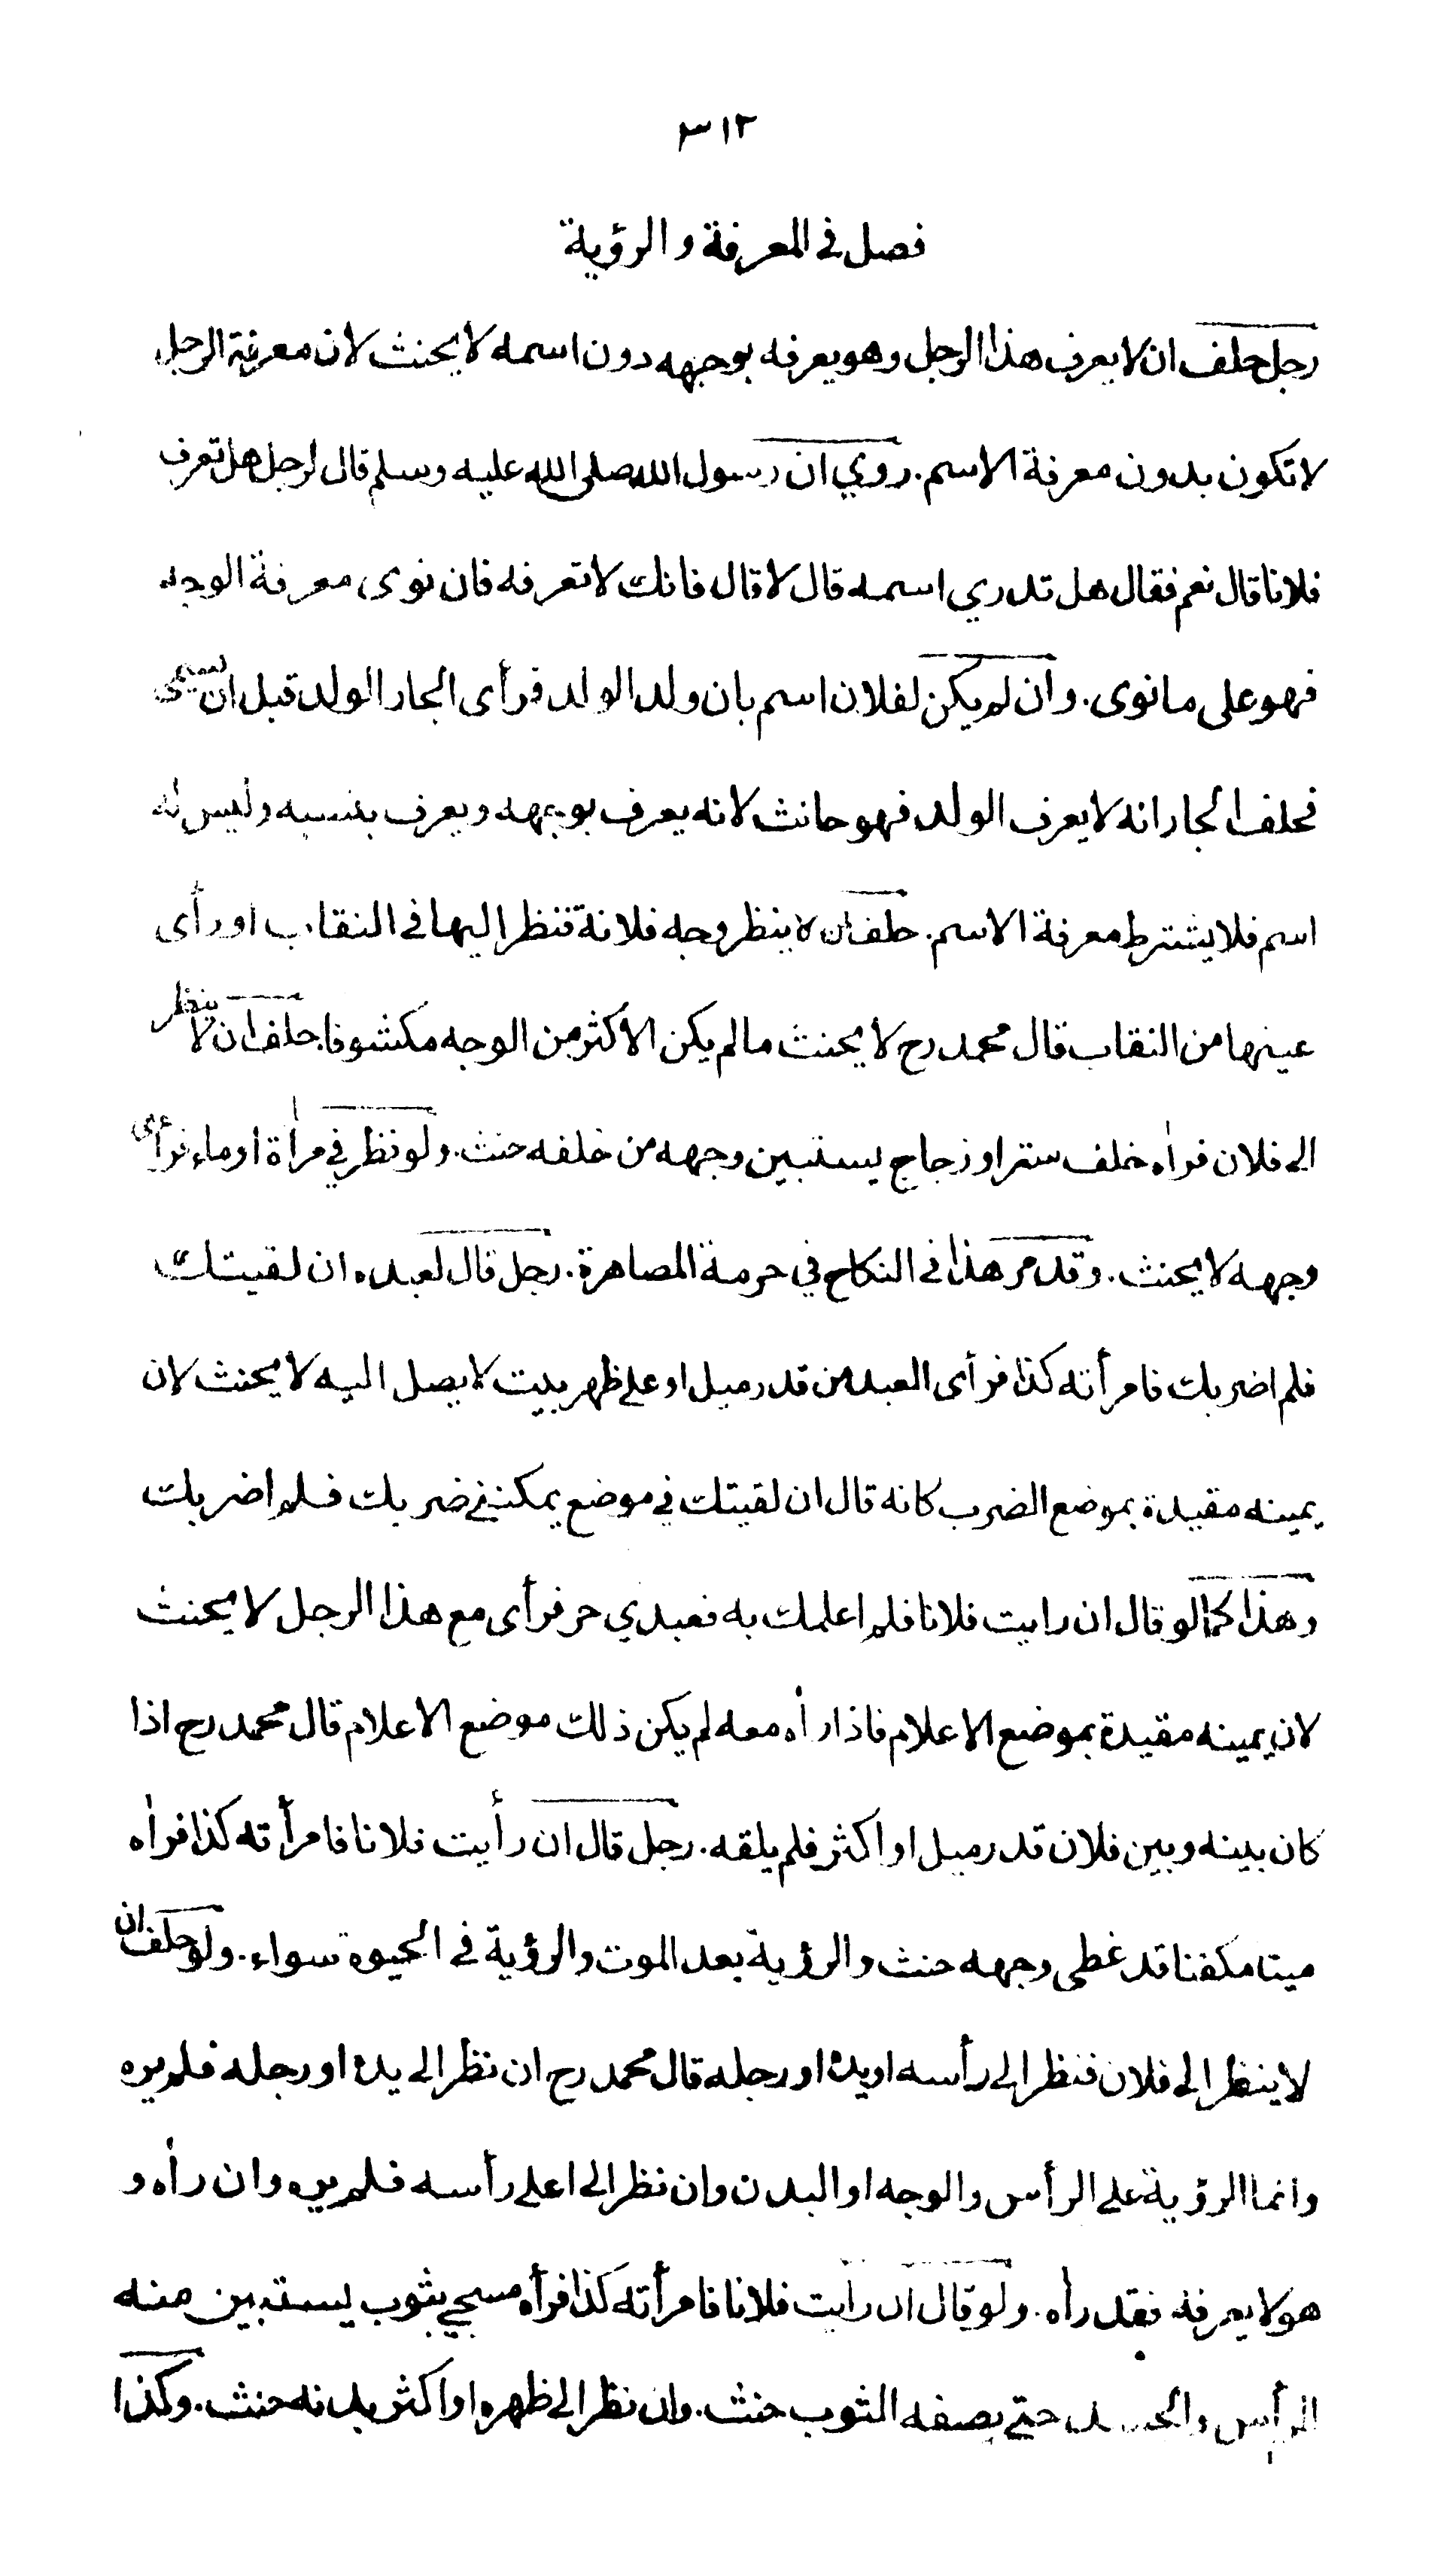 ٣١٢
فصل في المعرفة والرؤية
رجل حلف ان لا يعرف هذا الرجل وهو يعرفه بوجهه دون اسمه لا يحنث لان معرفة الرجل
لا تكون بدون معرفة الاسم. روي ان رسول الله صلى الله عليه وسلم قال لرجل هل تعرف
فلانا قال نعم فقال هل تدري اسمه قال لا قال فانك لا تعرفه فان نوى معرفة الوجه
فهو على ما نوى. وان لم يكن لفلان اسم بان ولد الولد فرأى الجار الولد قبل ان يسمى
فحلف الجار انه لا يعرف الولد فهو حانث لانه يعرف بوجهه ويعرف بنسبه وليس له
اسم فلا يشترط معرفة الاسم. حلف ان لا ينظر وجه فلانة فنظر اليها في النقاب او رأى
عينها من النقاب قال محمد رح لا يحنث ما لم يكن الاكثر من الوجه مكشوفا. حلف ان لا ينظر
الى فلان فرأه خلف ستر او زجاج يستبين وجهه من خلفه حنث. ولو نظر في مرأة او ماء فرأى
وجهه لا يحنث. وقد مر هذا في النكاح في حرمة المصاهرة. رجل قال لعبده ان لقيتك
فلم اضربك فامرأته كذا فرأى العبد من قدر ميل او على ظهر بيت لا يصل اليه لا يحنث لان
يمينه مقيدة بموضع الضرب كانه قال ان لقيتك في موضع يمكنني ضربك فلم اضربك
وهذا كما لو قال ان رايت فلانا فلم اعلمك به فعبدي حر فرأى مع هذا الرجل لا يحنث
لان يمينه مقيدة بموضع الاعلام فاذا رأه معه لم يكن ذلك موضع الاعلام قال محمد رح اذا
كان بينه وبين فلان قدر ميل او اكثر فلم يلقه. رجل قال ان رأيت فلانا فامرأته كذا فرأه
ميتا مكفنا قد غطى وجهه حنث والرؤية بعد الموت والرؤية في الحيوة سواء. ولو حلف ان
لا ينظر الى فلان فنظر الى رأسه او يده او رجله قال محمد رح ان نظر الى يده او رجله فلم يره
وانما الرؤية على الرأس والوجه او البدن وان نظر الى اعلى رأسه فلم يره وان رأه و
هو لا يعرفه فقد رأه. ولو قال ان رأيت فلانا فامرأته كذا فرأه مسجى بثوب يستبين منه
الرأس والجسد حتى يصفه الثوب حنث. وان نظر الى ظهره او اكثر بدنه حنث. وكذا